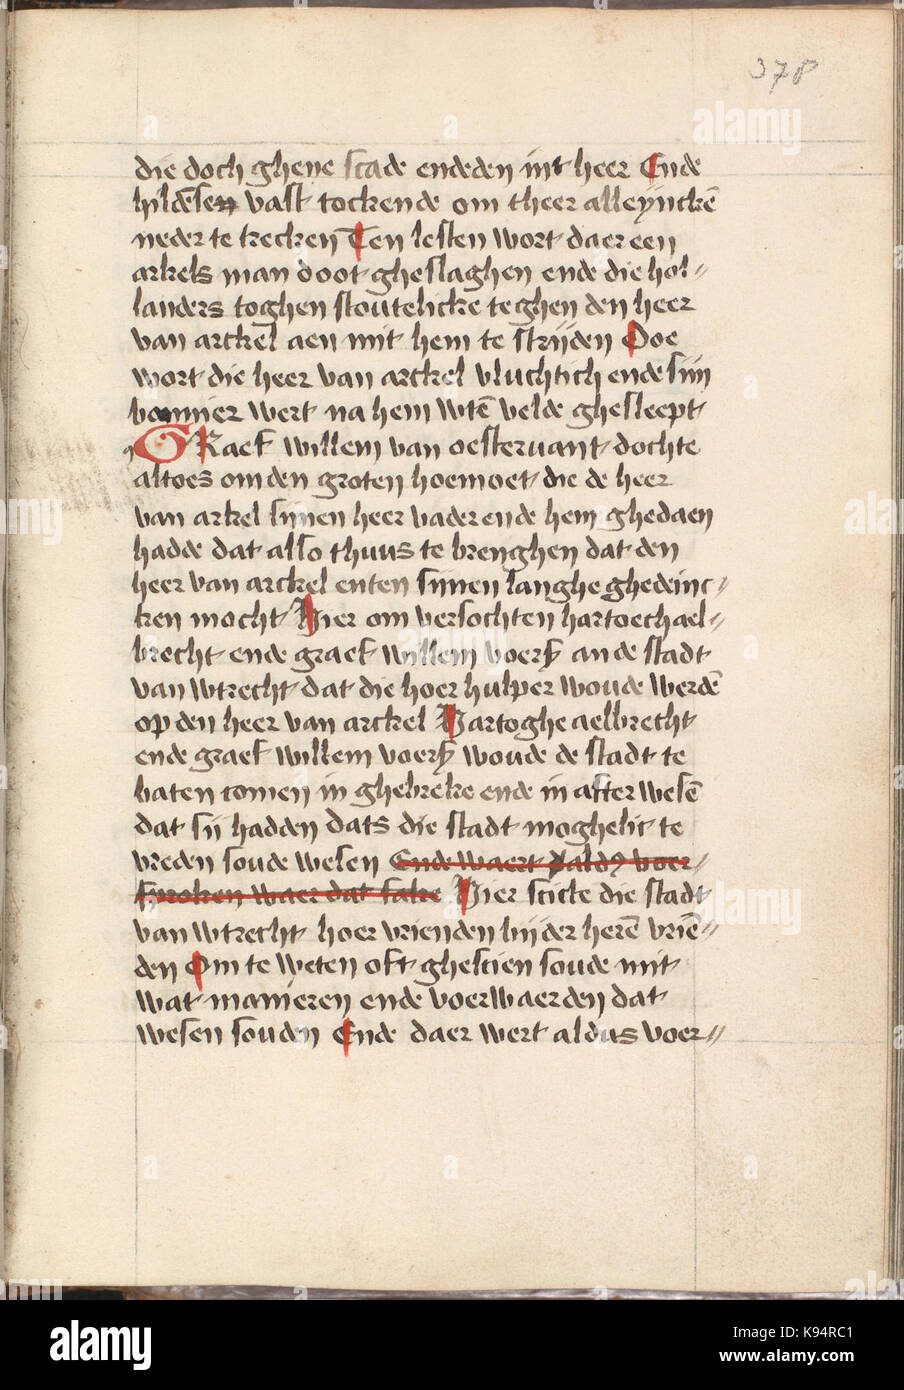 378
die doch ghene scade endeden int heer Ende
hildēsen vast tockende om theer alleynckē
neder te trecken Ten lesten wort daer een
arkels man doot gheslaghen ende die hol-
landers toghen stoutelicke teghen den heer
van arckel aen mit hem te strijden Doe
wort die heer van arckel vluchtich ende sijn
bannier wert na hem wtē velde ghesleept
GRaef willem van oestervant dochte
altoes om den groten hoemoet die de heer
van arkel sijnen heer vader ende hem ghedaen
hadde dat also thuus te brenghen dat den
heer van arckel enten sijnen langhe ghedinc-
ken mocht Hier om versochten hartoech ael-
brecht ende graef willem voers an de stadt
van wtrecht dat die hoer hulper woude werdē
op den heer van arckel Hartoghe aelbrecht
ende graef willem voers woude de stadt te
baten comen in ghebreke ende in after wesē
dat sij hadden dats die stadt moghelic te
vreden soude wesen Ende waert aldus voer-
sproken waer dat sake Hier sticte die stadt
van wtrecht hoer vrienden bijder herē vriē-
den Om te weten oft ghescien soude mit
wat manieren ende voerwaerden dat
wesen souden Ende daer wert aldus voer-
alamy
Image ID: K94RC1
www.alamy.com